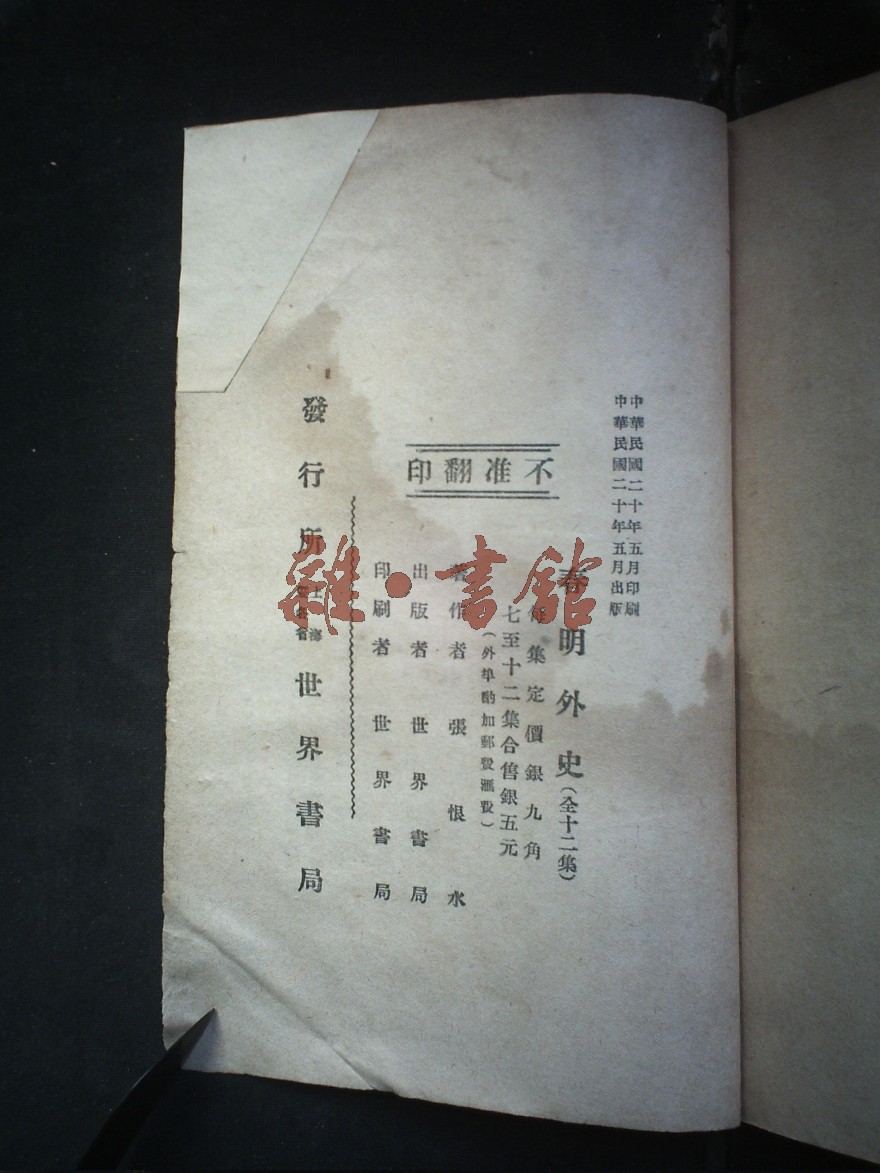 中華民國二十年五月印刷
中華民國二十年五月出版
春明外史（全十二集）
每集定價銀九角
七至十二集合售銀五元
（外埠酌加郵費滙費）
不准翻印
著作者 張恨水
出版者 世界書局
印刷者 世界書局
發行所 上海 世界書局
雜·書館